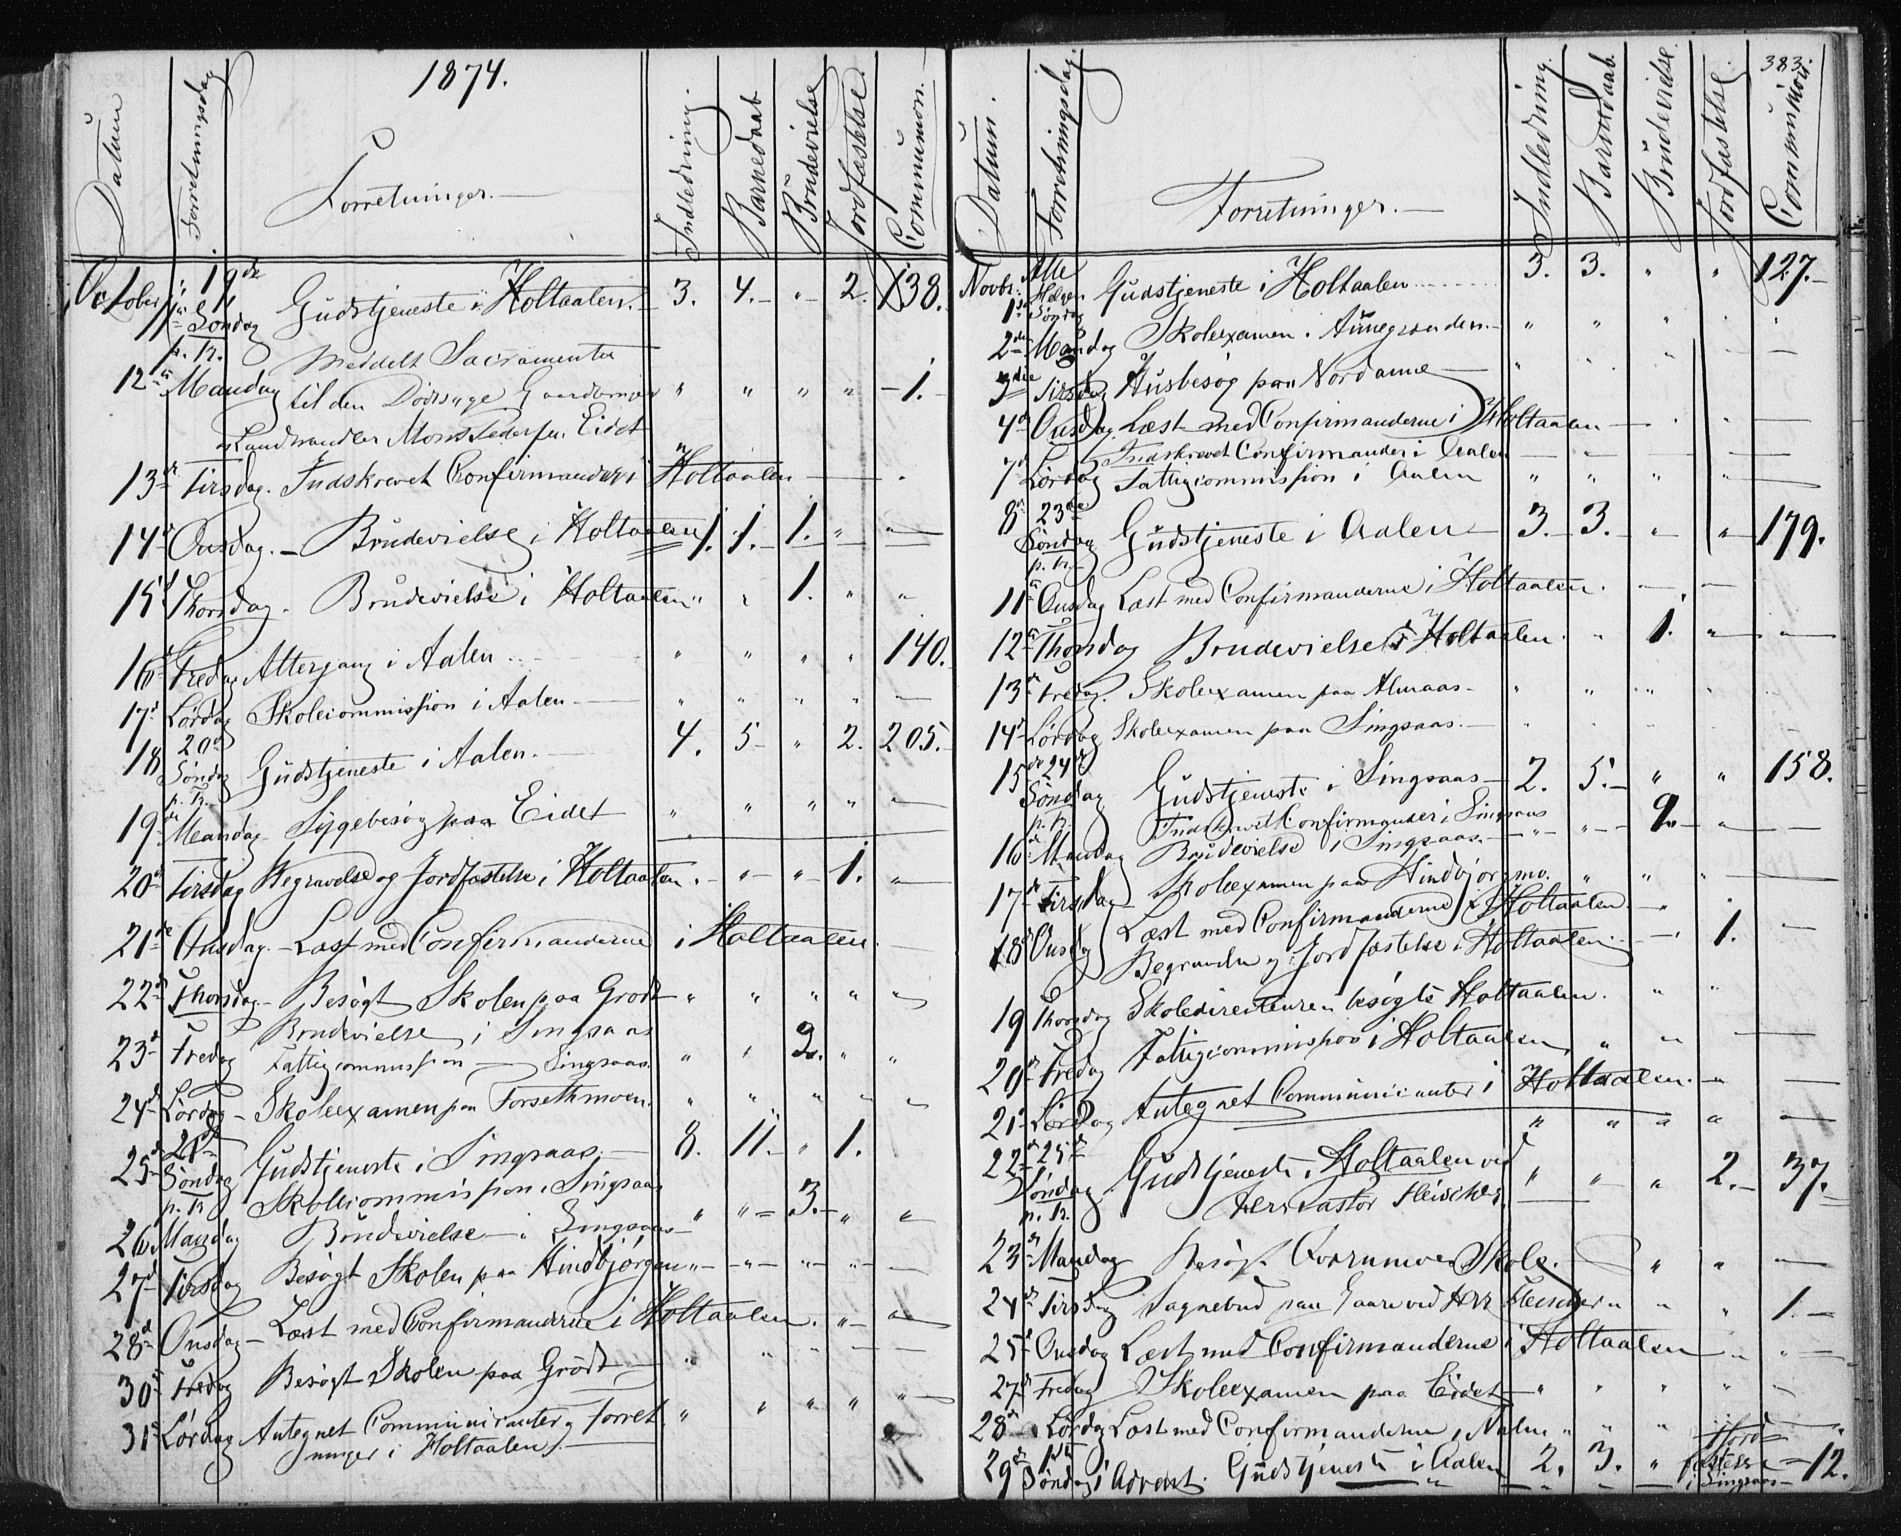 1874.
Datum Forretningsdag Forretninger. Indledning. Barnedaab Brudevielse Jordfæstelse Communion.
October 11te 19de Søndag p. Tr. Gudstjeneste i Holtaalen. 3. 4. " 2. 138.
12te Mandag Meddelt Sacramentet
til den Dødssyge Gaardbruger " " " " 1.
og Landhandler Mons Pedersen Eidet
13de Tirsdag. Indskrevet Confirmander i Holtaalen
14de Onsdag. Brudevielse i Holtaalen 1. 1. 1. " "
15de Thorsdag. Brudevielse i Holtaalen " " 1. " "
16de Fredag Altergang i Aalen " " " " 140.
17de Lørdag Skolecommission i Aalen " " " " "
18 20de Søndag p. Tr. Gudstjeneste i Aalen. 4. 5 " 2. 205.
19de Mandag Sygebesøg paa Eidet " " " " "
20de Tirsdag Begravelse og Jordfæstelse i Holtaalen " " " 1. "
21de Onsdag. Læst med Confirmanderne i Holtaalen.
22de Thorsdag Besøgt Skolen paa Grødt " " " " "
23de Fredag Brudevielse i Singsaas
Fattigcommission Singsaas. " " 2. " "
24de Lørdag Skoleexamen paa Forsethmoen. " " " " "
25de 21de Søndag p. Tr. Gudstjeneste i Singsaas. 8. 11. " 1.
Skolecommission i Singsaas
26de Mandag Brudevielse i Singsaas " " 3. " "
27de Tirsdag Besøgt Skolen paa Hindbjørgen " " " " "
28de Onsdag Læst med Confirmanderne i Holtaalen. " "
30de Fredag Besøgt Skolen paa Grødt " " " "
31de Lørdag Antegnet Communicanter og Forret
ninger i Holtaalen. " " " " "
383.
Datum. Forretningsdag Forretninger. Indledning. Barnedaab. Brudevielse. Jordfæstelse. Communion
Novbr. 1ste Alle Helgen Søndag Gudstjeneste i Holtaalen 3. 3. " " 127.
2den Mandag Skoleexamen i Aunegrenden. " " " " "
3die Tirsdag Husbesøg paa Nordaune " " "
4de Onsdag Læst med Confirmanderne i Holtaalen
Indskrevet Confirmander i Aalen
7de Lørdag Fattigcommission i Aalen " " " "
8de 23de Søndag p. Tr. Gudstjeneste i Aalen 3. 3. " " 179.
11te Onsdag Læst med Confirmanderne i Holtaalen.
12te Thorsdag Brudevielse i Holtaalen. " 1. " "
13de Fredag. Skoleexamen paa Almaas " " " "
14de Lørdag Skoleexamen paa Singsaas.
15de 24de Søndag p. Tr. Gudstjeneste i Singsaas 2. 5. " " 158.
Indskrevet Confirmander i Singsaas
16de Mandag Brudevielse i Singsaas. " " 2. "
17de Tirsdag Skoleexamen paa Hindbjørgmo. " " "
Læst med Confirmanderne i Holtaalen
18de Onsdag Begravelse og Jordfæstelse i Holtaalen. 1.
19 Thorsdag Skoledirecteuren besøgte Holtaalen. " "
20de Fredag Fattigcommission i Holtaalen " "
21de Lørdag Antegnet Communicanter i Holtaalen.
22de 25de Søndag p. Tr. Gudstjeneste i Holtaalen ved
Herr Pastor Fleischer. " " " 2. 37.
23de Mandag Besøgt Skole. " "
24de Tirsdag Sognebud paa Gaare ved Herr Fleischer " " " 1.
25de Onsdag Læst med Confirmanderne i Holtaalen
27de Fredag Skoleexamen paa Eidet " " " "
28de Lørdag Læst med Confirmanderne i Aalen " " "
29de 1ste Søndag i Advent. Gudstjeneste i Aalen 2. 3. " Jord
fæstelse
i Singsaas 12.